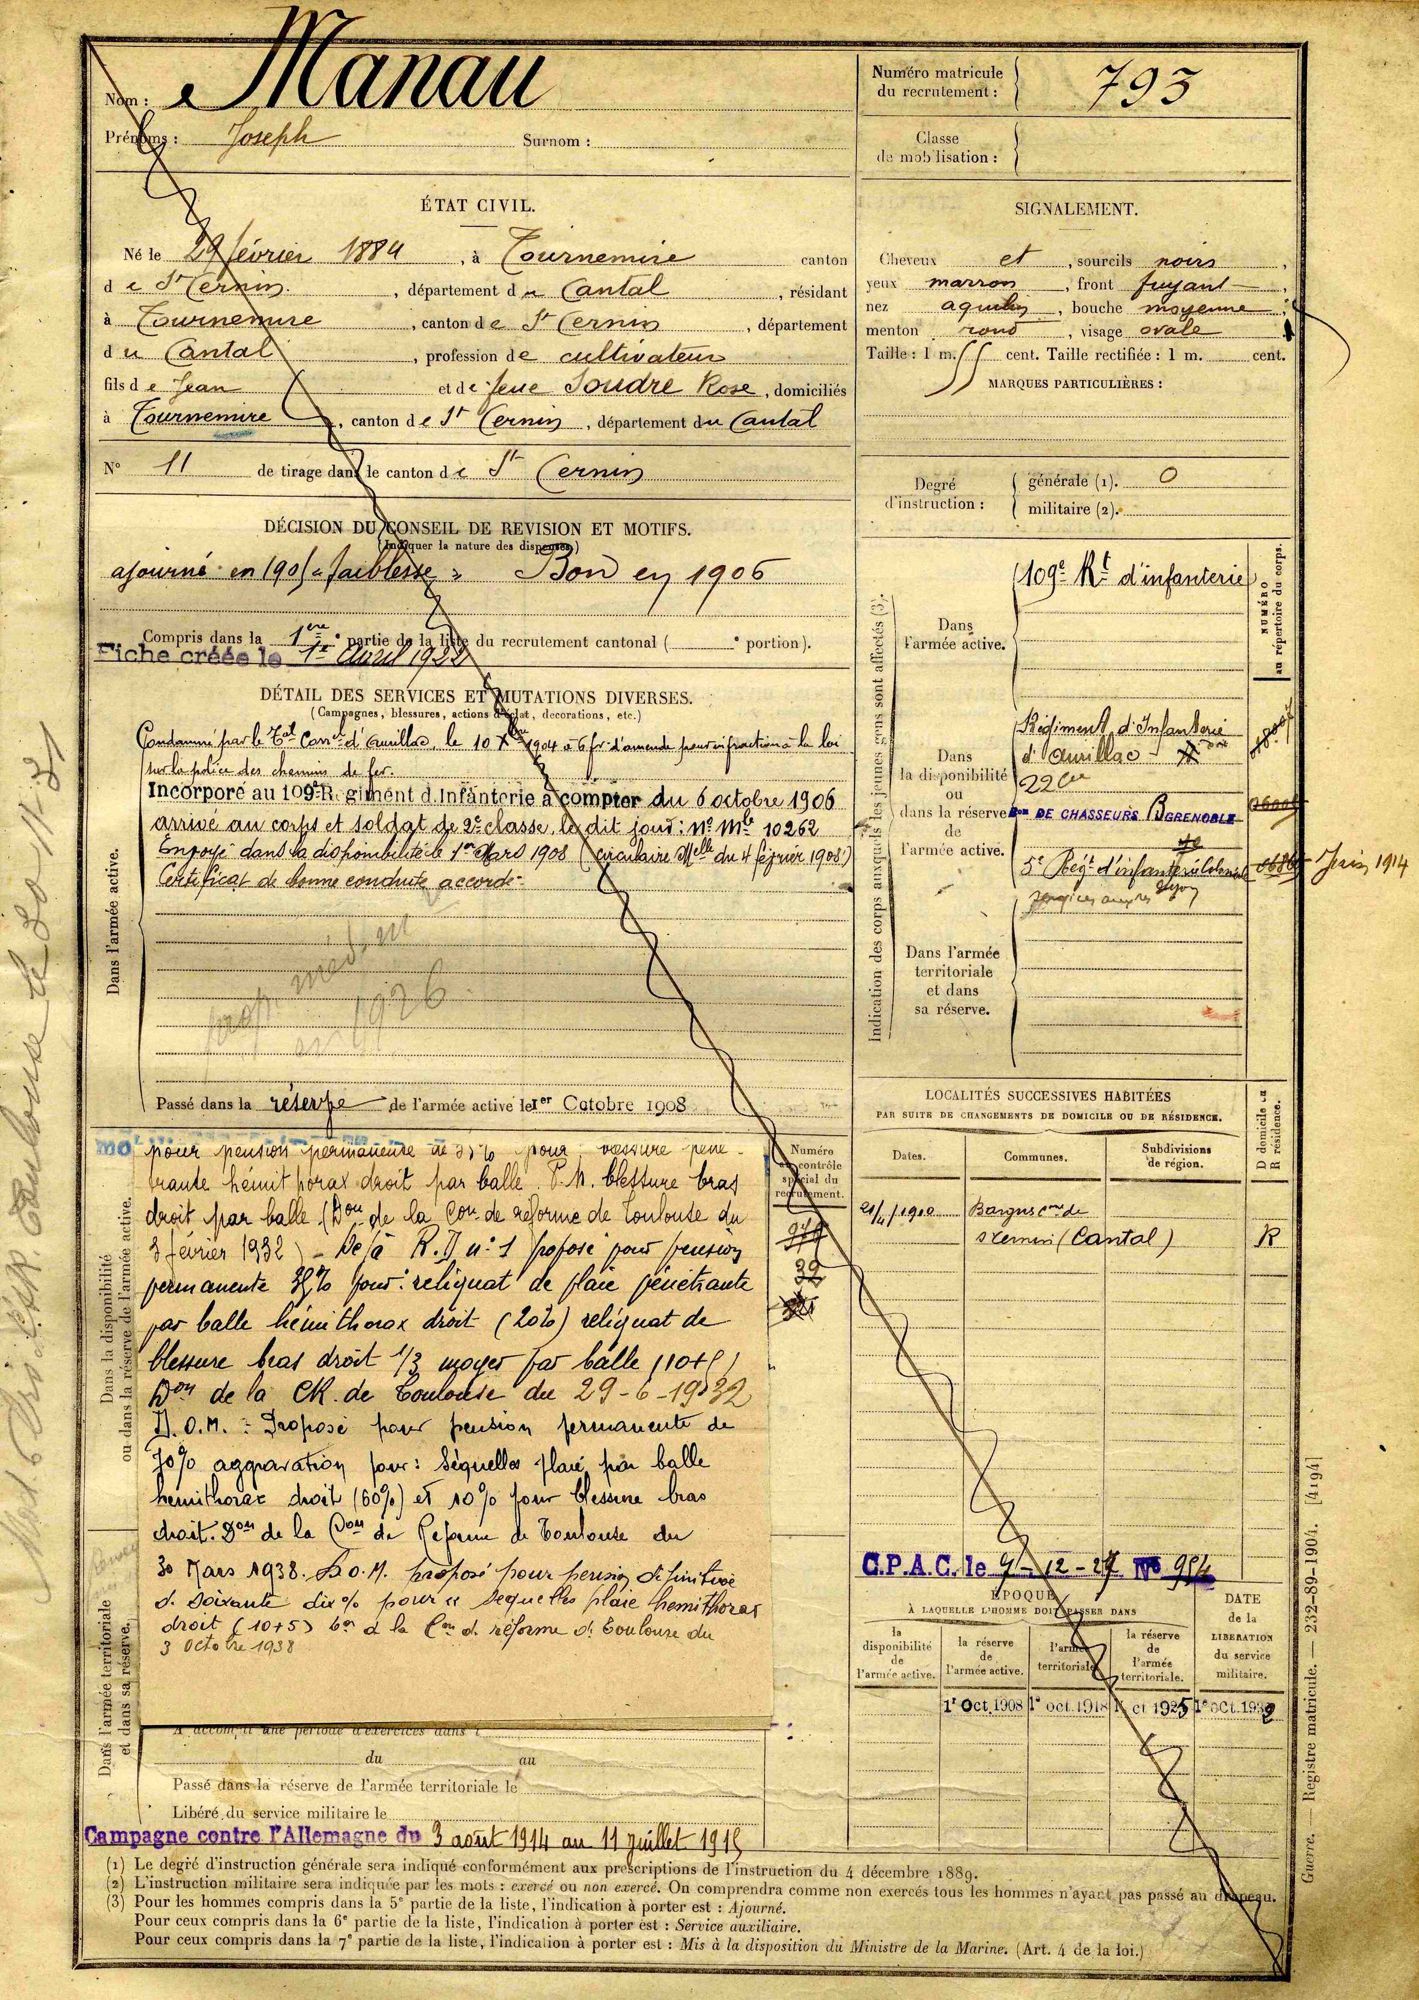 Nom : Manau
Prénoms : Joseph Surnom :
Numéro matricule du recrutement : 793
Classe de mobilisation :
ÉTAT CIVIL.
Né le 29 février 1884, à Tournemire canton
de St Cernin, département du Cantal, résidant
à Tournemire, canton de St Cernin, département
du Cantal, profession de cultivateur
fils de Jean et de feue Soudre Rose, domiciliés
à Tournemire, canton de St Cernin, département du Cantal
N° 11 de tirage dans le canton de St Cernin
SIGNALEMENT.
Cheveux et, sourcils noirs,
yeux marron, front fuyant,
nez aquilin, bouche moyenne,
menton rond, visage ovale
Taille : 1 m. 55 cent. Taille rectifiée : 1 m. cent.
MARQUES PARTICULIÈRES :
Degré d'instruction :
générale (1). 0
militaire (2).
DÉCISION DU CONSEIL DE REVISION ET MOTIFS.
(Indiquer la nature des dispenses.)
ajourné en 1905 "faiblesse" Bon en 1906
Compris dans la 1ère partie de la liste du recrutement cantonal ( portion).
Fiche créée le 1er Avril 1922
DÉTAIL DES SERVICES ET MUTATIONS DIVERSES.
(Campagnes, blessures, actions d'éclat, decorations, etc.)
Condamné par le Tal Correl d'Aurillac, le 10 Xbre 1904 à 6 fr d'amende pour infraction à la loi
sur la police des chemins de fer.
Incorporé au 109e Régiment d'Infanterie à compter du 6 octobre 1906
arrivé au corps et soldat de 2e classe, le dit jour : No Mle 10262
Envoyé dans la disponibilité le 1er Mars 1908 (Circulaire Mlle du 4 février 1908)
Certificat de bonne conduite accordé.
Dans l'armée active.
prop. méd. m
en 1926
Passé dans la réserve de l'armée active le 1er Octobre 1908
Indication des corps auxquels les jeunes gens sont affectés (3).
NUMÉRO au répertoire du corps.
Dans l'armée active.
109e Rt d'infanterie
Dans la disponibilité ou dans la réserve de l'armée active.
Régiment d'Infanterie
d'Aurillac
22e
Bon DE CHASSEURS GRENOBLE
5e Régt d'infanterie Coloniale Juin 1914
Lyon
Dans l'armée territoriale et dans sa réserve.
Dans la disponibilité ou dans la réserve de l'armée active.
Numéro au contrôle spécial du recrutement.
32
pour pension permanente de 35% pour blessure péné-
trante hémithorax droit par balle. P.M. blessure bras
droit par balle (Don de la Con de réforme de Toulouse du
3 février 1932) - Déjà R.D n° 1 proposé pour pension
permanente 35% pour : reliquat de plaie pénétrante
par balle hémithorax droit (20%) reliquat de
blessure bras droit 1/3 moyen par balle (10+5)
Don de la CR. de Toulouse du 29-6-1932
D.O.M. : Proposé pour pension permanente de
70% aggravation pour : Séquelles plaie par balle
hemithorax droit (60%) et 10% pour blessure bras
droit. Don de la Con de Reforme de Toulouse du
30 Mars 1938. D.O.M. proposé pour pension définitive
de soixante dix % pour " sequelles plaie hemithorax
droit (10+5) Don de la Con de réforme de Toulouse du
3 Octobre 1938
LOCALITÉS SUCCESSIVES HABITÉES
PAR SUITE DE CHANGEMENTS DE DOMICILE OU DE RÉSIDENCE.
Dates. Communes. Subdivisions de région. D domicile ou R résidence.
21/4/1910 Bargus cne de
St Cernin (Cantal) R
C.P.A.C. le 9-12-27 No 954
ÉPOQUE
À LAQUELLE L'HOMME DOIT PASSER DANS
la disponibilité de l'armée active.
la réserve de l'armée active.
l'armée territoriale.
la réserve de l'armée territoriale.
DATE de la LIBÉRATION du service militaire.
1r Oct. 1908 1r oct. 1918 1r oct 1925 1r oct. 1932
Dans l'armée territoriale et dans sa réserve.
A accompli une période d'exercices dans l
du au
Passé dans la réserve de l'armée territoriale le
Libéré du service militaire le
Campagne contre l'Allemagne du 3 août 1914 au 11 juillet 1915
(1) Le degré d'instruction générale sera indiqué conformément aux prescriptions de l'instruction du 4 décembre 1889.
(2) L'instruction militaire sera indiquée par les mots : exercé ou non exercé. On comprendra comme non exercés tous les hommes n'ayant pas passé au drapeau.
(3) Pour les hommes compris dans la 5e partie de la liste, l'indication à porter est : Ajourné.
Pour ceux compris dans la 6e partie de la liste, l'indication à porter est : Service auxiliaire.
Pour ceux compris dans la 7e partie de la liste, l'indication à porter est : Mis à la disposition du Ministre de la Marine. (Art. 4 de la loi.)
Guerre. — Registre matricule. — 232-89-1904. [4194]
Toulouse le 30-11-31